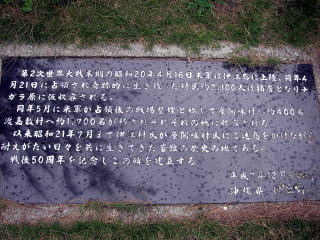 第2次世界大戦末期の昭和20年4月16日米軍は伊江島に上陸、同年4
月21日に占領され奇跡的に生き残った村民約2,100人は捕虜となりナ
ガラ原に仮収容される。
同年5月に米軍が占領後の戦場整理と称して座間味村へ約400名
渡嘉敷村へ約1,700名が移されそれぞれの地に収容された。
以来昭和21年7月まで伊江村民が座間味村民にご迷惑をかけながら
耐えがたい日々を共に生きてきた苦難の歴史の地である。
戦後50周年を記念しこの碑を建立する。
平成7年12月
沖縄県